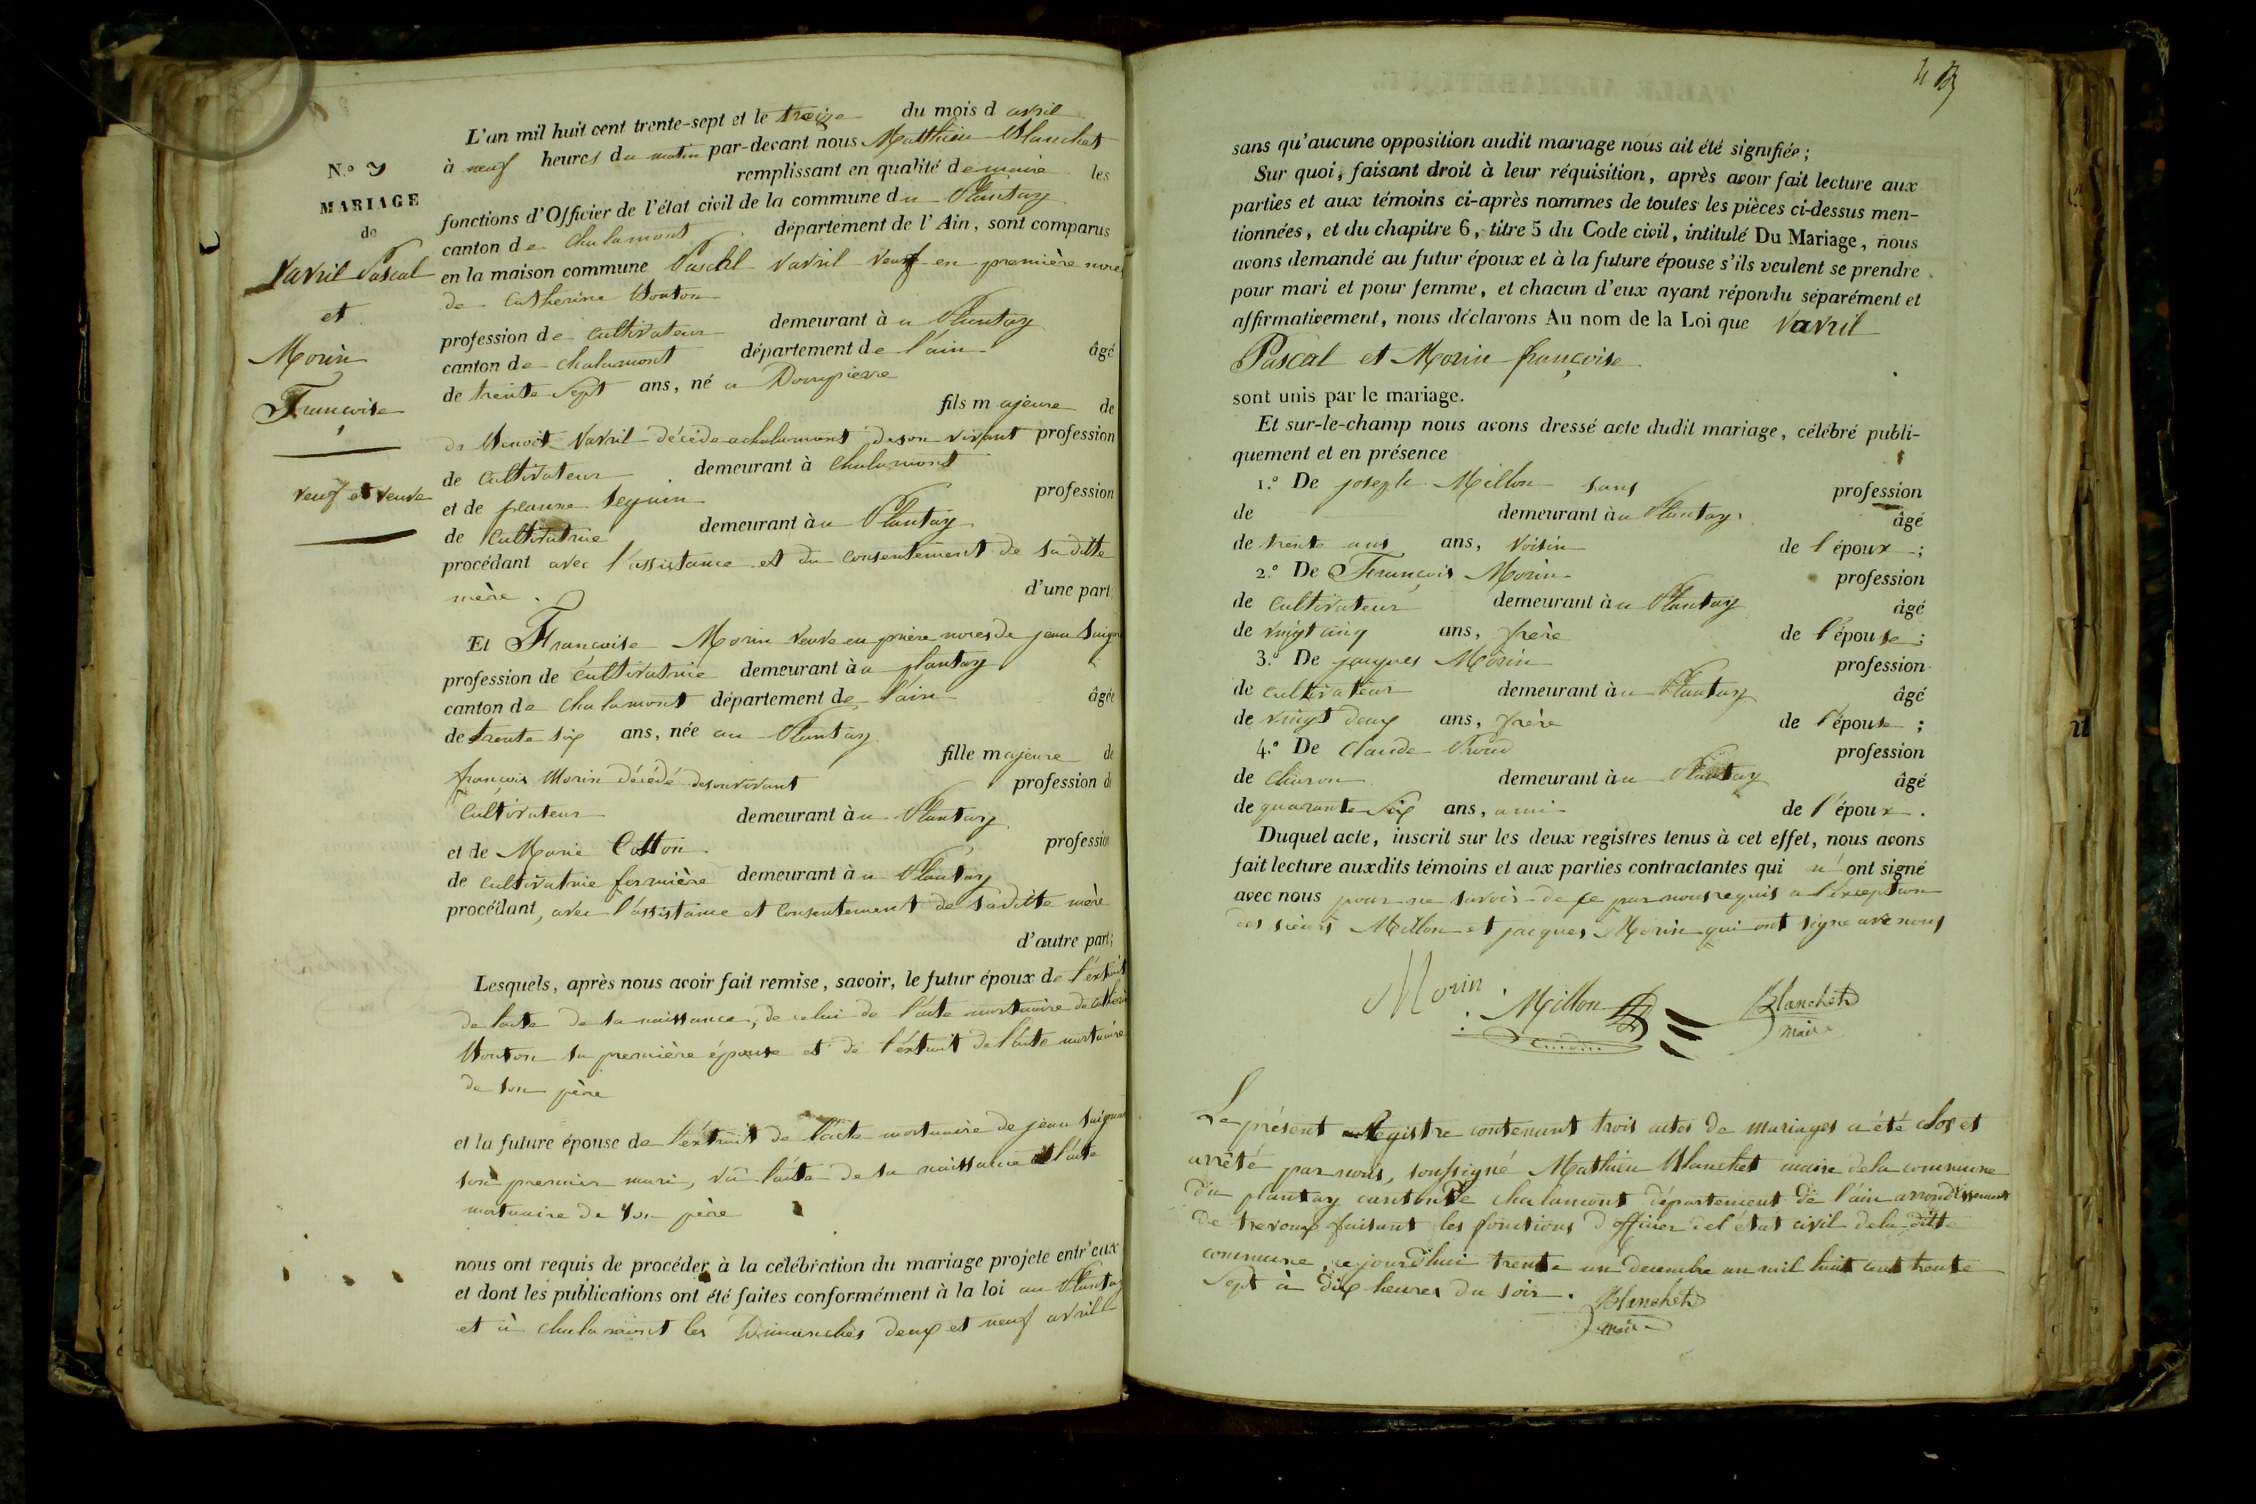 N.o 3
MARIAGE
de
Vavril Pascal
et
Morin
Françoise
veuf et veuve
L'an mil huit cent trente-sept et le treize du mois d avril
à neuf heures du matin par-devant nous Matthieu Blanchet
remplissant en qualité de maire les
fonctions d'Officier de l'état civil de la commune du Plantay
canton de chalamont département de l'Ain, sont comparus
en la maison commune Pascal Vavril veuf en première noce
de Catherine Bouton
profession de cultivateur demeurant à u Plantay
canton de chalamont département de l'ain âgé
de trente sept ans, né a Dompierre
fils majeure de
de Benoit Vavril décédé a chalamont de son vivant profession
de cultivateur demeurant à chalamont
et de jeanne seguin profession
de cultivatrice demeurant à u Plantay
procédant avec l'assistance et du consentement de sa ditte
mère. d'une part
Et Françoise Morin veuve en prière noces de jean
profession de cultivatrice demeurant à u plantay
canton de chalamont département de l'ain âgée
de trente six ans, née au Plantay
fille majeure de
françois Morin décédé de son vivant profession de
cultivateur demeurant à u Plantay
et de Marie Cotton profession
de cultivatrice fermière demeurant à u Plantay
procédant, avec l'assistance et consentement de sa ditte mère
d'autre part;
Lesquels, après nous avoir fait remise, savoir, le futur époux de l'extrait
de l'acte de sa naissance, de celui de l'acte mortuaire de
Bouton sa première épouse et de l'extrait de l'acte mortuaire
de son père
et la future épouse de l'extrait de l'acte mortuaire de jean
son premier mari, vû l'acte de sa naissance et l'acte
mortuaire de son père
nous ont requis de procéder à la célébration du mariage projeté entr'eux
et dont les publications ont été faites conformément à la loi au Plantay
et à chalamont les Dimanches deux et neuf avril
sans qu'aucune opposition audit mariage nous ait été signifiée;
Sur quoi, faisant droit à leur réquisition, après avoir fait lecture aux
parties et aux témoins ci-après nommes de toutes les pièces ci-dessus men-
tionnées, et du chapitre 6, titre 5 du Code civil, intitulé Du Mariage, nous
avons demandé au futur époux et à la future épouse s'ils veulent se prendre
pour mari et pour femme, et chacun d'eux ayant répondu séparément et
affirmativement, nous déclarons Au nom de la Loi que Vavril
Pascal et Morin françoise
sont unis par le mariage.
Et sur-le-champ nous avons dressé acte dudit mariage, célébré publi-
quement et en présence
1.o De joseph Millon sans profession
de demeurant à u Plantay. âgé
de trente ans ans, voisin de l'époux;
2.o De François Morin profession
de cultivateur demeurant à u Plantay âgé
de vingt cinq ans, frère de l'épouse;
3.o De jacques Morin profession
de cultivateur demeurant à u Plantay âgé
de vingt deux ans, frère de l'épouse;
4.o De Claude profession
de demeurant à u Plantay âgé
de quarante six ans, ami de l'époux.
Duquel acte, inscrit sur les deux registres tenus à cet effet, nous avons
fait lecture auxdits témoins et aux parties contractantes qui n' ont signé
avec nous pour ne savoir de ce par nous requis a l'exception
des sieurs Millon et jacques Morin qui ont signé ave nous
Morin. Millon Blanchet
maire
Le présent Registre contenant trois actes de mariages a été clos et
arrêté par nous, soussigné Mathieu Blanchet maire de la commune
du plantay canton de chalamont département de l'ain arrondissement
de trevoux faisant les fonctions d'officier de l'état civil de la ditte
commune, ce jourd'hui trente un decembre an mil huit cent trente
sept à dix heures du soir. Blanchet
maire